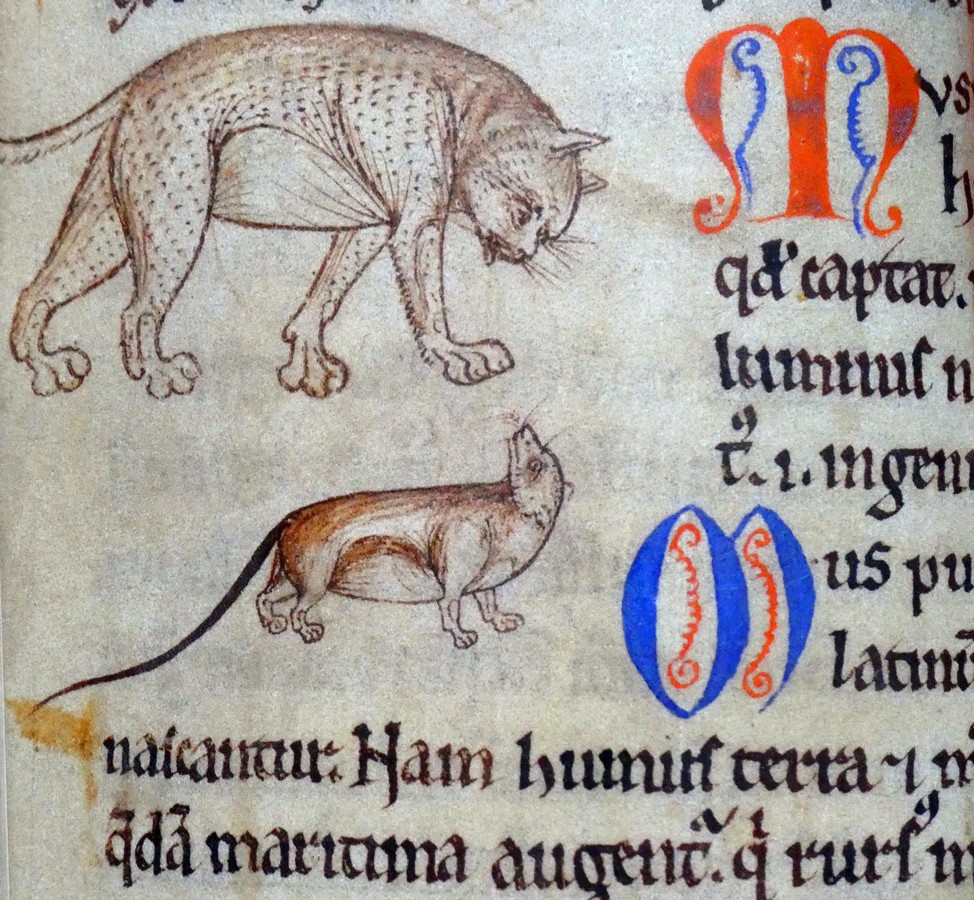 Mvs
h
qd' captat.
luminis n
t'. i. ingeni
Mus pu
latinū
nascantur. Nam humus terra ⁊ m
q̄dā maritima augent. q̇ rursꝰ m